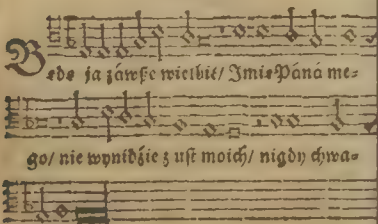 Bede ja záwße wielbić/ Imie Páná me=
go/ nie wynidźie z uſt moich/ nigdy chwa=